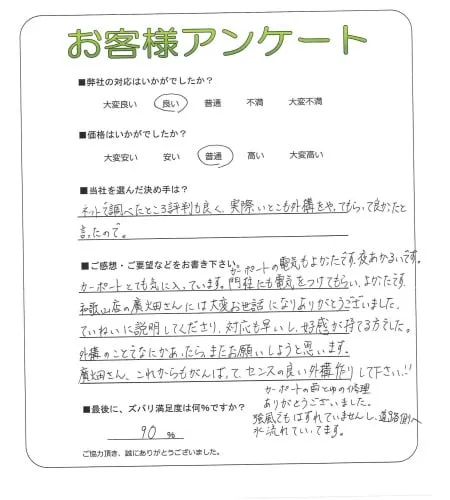 お客様アンケート
■弊社の対応はいかがでしたか？
大変良い 良い 普通 不満 大変不満
■価格はいかがでしたか？
大変安い 安い 普通 高い 大変高い
■当社を選んだ決め手は？
ネットで調べたところ評判も良く、実際、いとこも外構をやってもらって良かったと
言ったので。
■ご感想・ご要望などをお書き下さい。
カーポートの電気もよかたです。夜あかるいです。
カーポートとても気に入っています。門柱にも電気をつけてもらい、よかたです。
和歌山店の廣畑さんには大変お世話になりありがとうございました。
ていねいに説明してくださり、対応も早いし、好感が持てる方でした。
外構のことでなにかあったら、またお願いしようと思います。
廣畑さん、これからもがんばって、センスの良い外構作りして下さい!!
カーポートの雨とゆの修理
ありがとうございました。
強風でもはずれていませんし、道路側へ
水流れていってます。
■最後に、ズバリ満足度は何%ですか？
90 %
ご協力頂き、誠にありがとうございました。